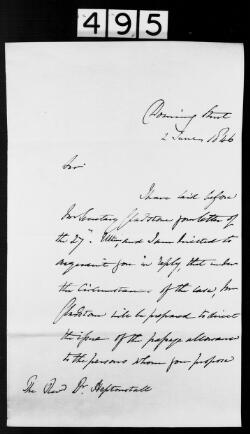 495
Downing Street
2 June 1846
Sir
I have laid before
Mr Secretary Gladstone your letter of
the 27th Ulto, and I am directed to
acquaint you in reply, that under
the circumstances of the case, Mr
Gladstone will be prepared to direct
the issue of the passage allowance
to the persons whom you propose
The Revd Dr Heptonstall